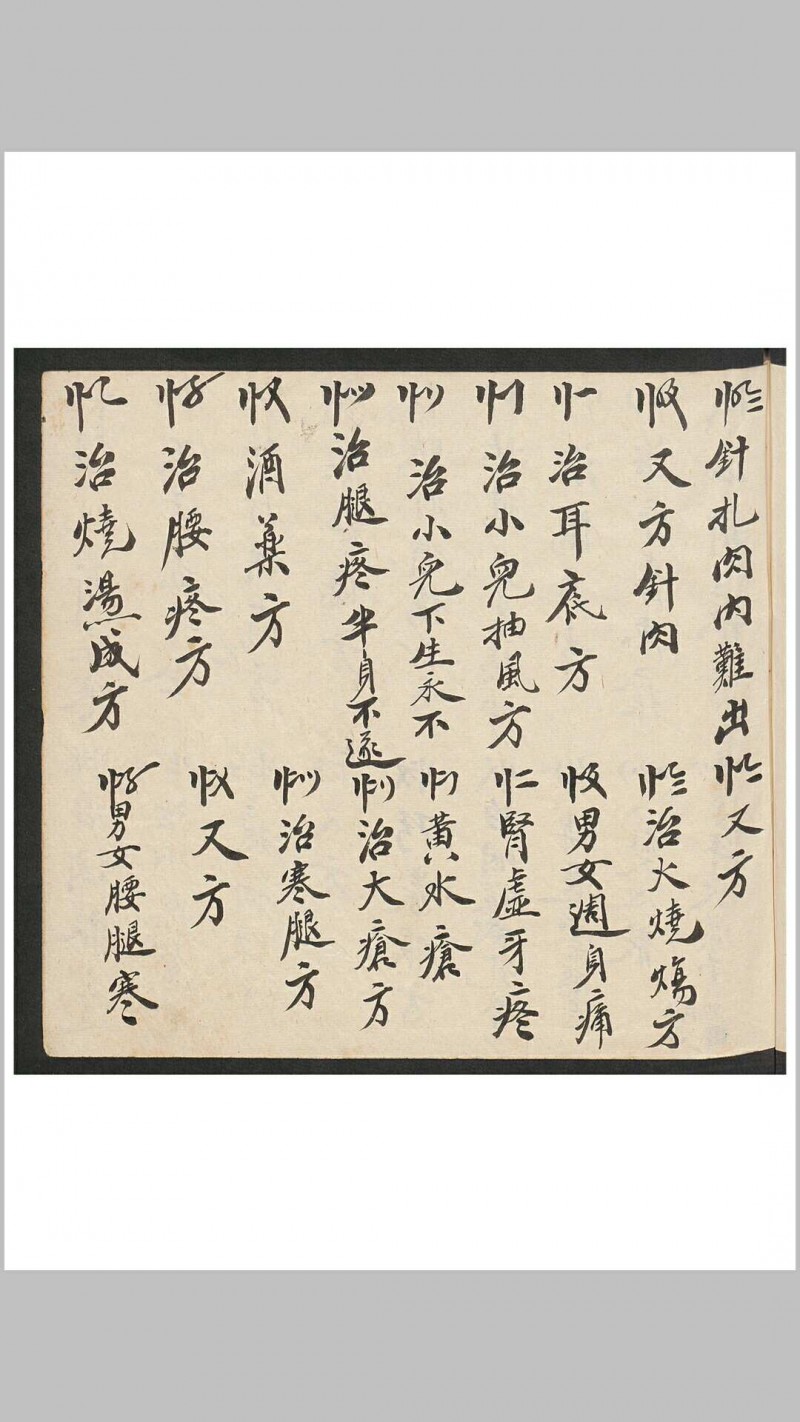 針扎肉內難出
又方
又方針肉
治火燒煬方
治耳底方
男女週身痛
治小兒抽風方
腎虛牙疼
治小兒下生永不
黃水瘡
治腿疼半身不遂
治大瘡方
酒薬方
治寒腿方
治腰疼方
又方
治燒燙成方
男女腰腿寒